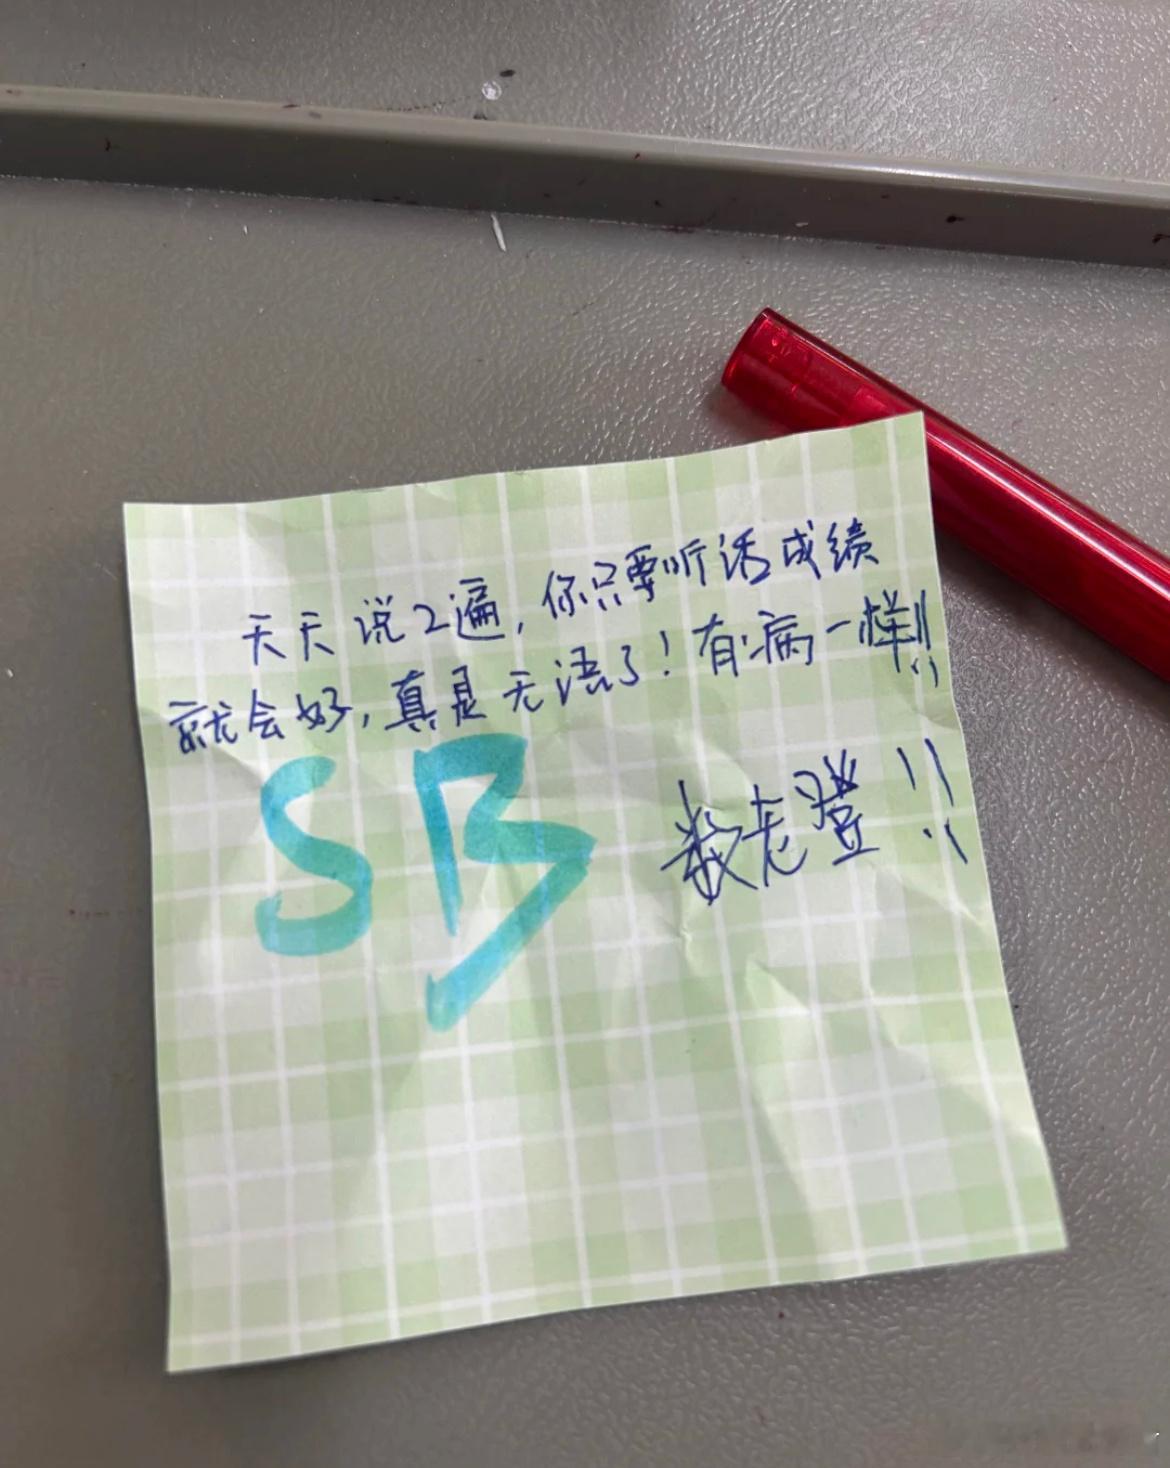 天天说2遍，你只要听话成绩
就会好，真是无语了！有病一样!!
SB
数老登!!